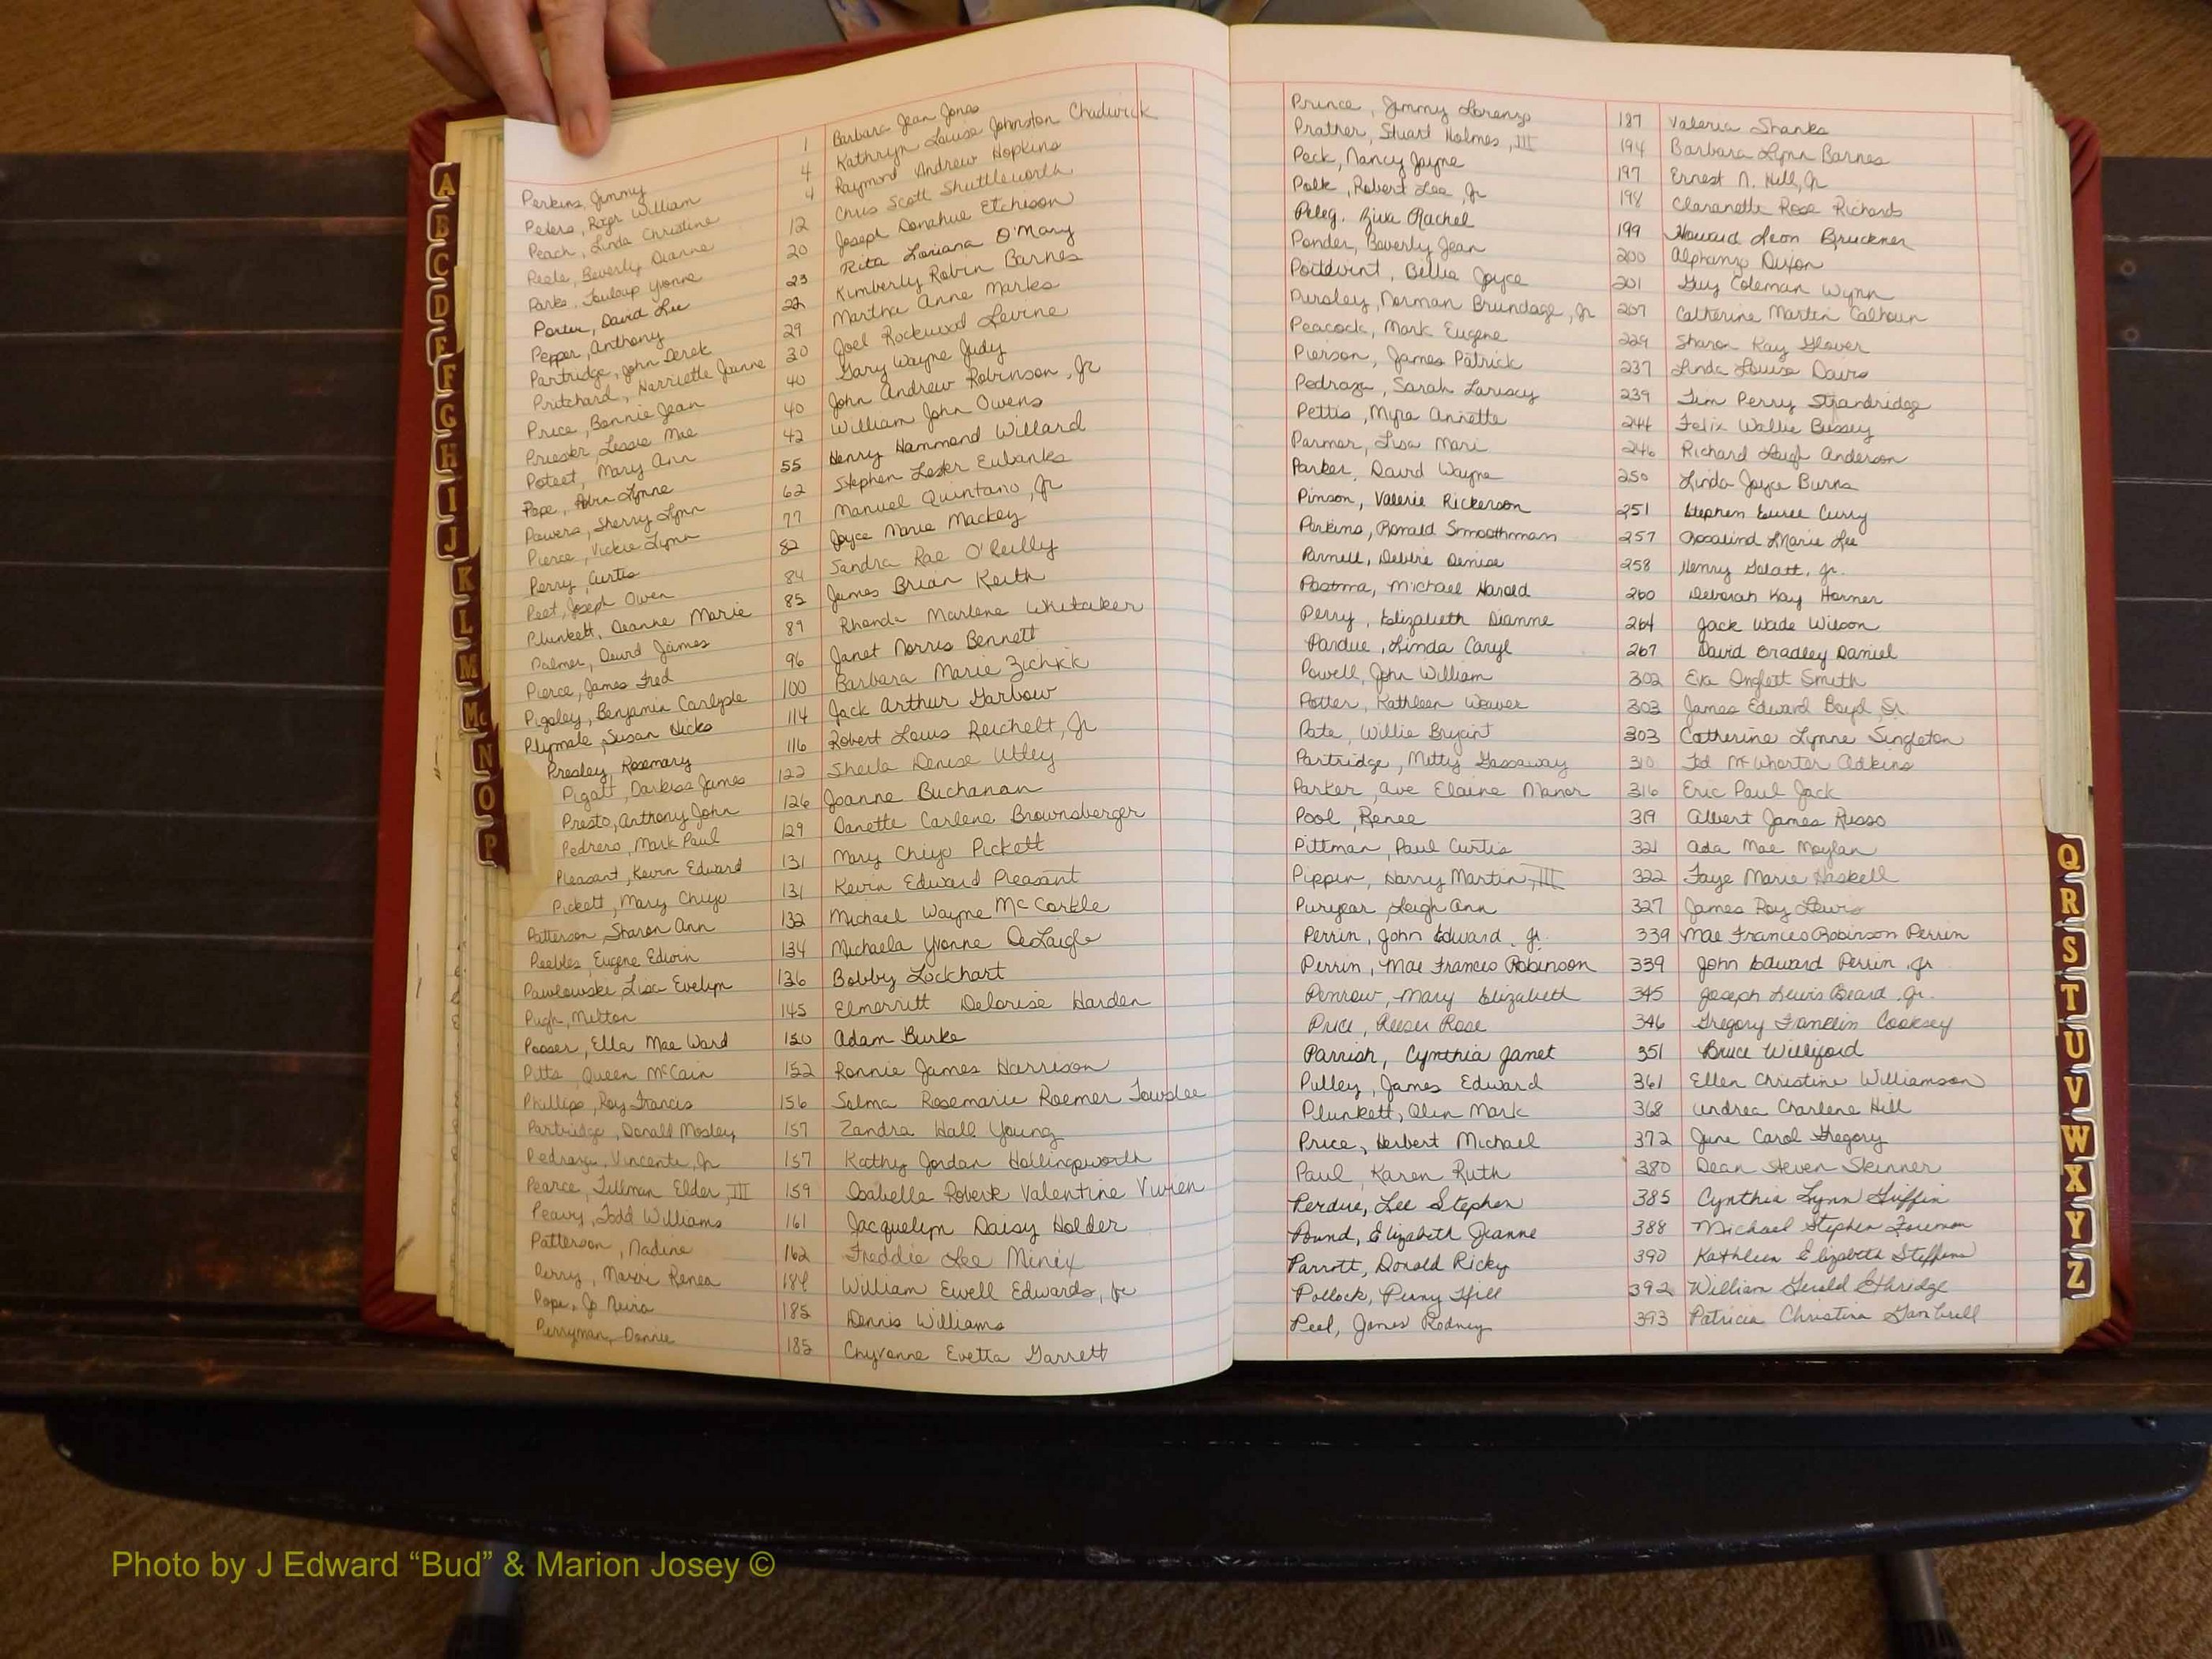 Perkins, Jimmy 1 Barbara Jean Jones
Peters, Roger William 4 Kathryn Louise Johnston Chadwick
Peach, Linda Christine 4 Raymond Andrew Hopkins
Peele, Beverly Dianne 12 Chris Scott Shuttleworth
Parks, Yvonne 20 Joseph Donahue Etchison
Porter, David Lee 23 Rita Loriana O'Mary
Pepper, Anthony 22 Kimberly Robin Barnes
Partridge, John Derek 29 Martha Anne Marks
Pritchard, Harriette Jeanne 30 Joel Rockwood Levine
Price, Bonnie Jean 40 Gary Wayne Judy
Priester, Lessie Mae 40 John Andrew Robinson, Jr
Poteet, Mary Ann 42 William John Owens
Pope, Robin Lynne 55 Henry Hammond Willard
Powers, Sherry Lynn 62 Stephen Lester Eubanks
Pierce, Vickie Lynn 77 Manuel Quintano, Jr
Perry, Curtis 82 Joyce Marie Mackey
Peet, Joseph Owen 84 Sandra Rae O'Reilly
Plunkett, Deanne Marie 85 James Brian Keith
Palmer, David James 89 Rhonda Marlene Whitaker
Pierce, James Fred 96 Janet Norris Bennett
Pigsley, Benjamin Carlysle 100 Barbara Marie Zichick
Plymale, Susan Hicks 114 Jack Arthur Garbow
Presley, Rosemary 116 Robert Louis Reichelt, Jr
Pigott, Darkiss James 122 Sheila Denise Utley
Presto, Anthony John 126 Joanne Buchanan
Pedrero, Mark Paul 129 Danette Carlene Brownsberger
Pleasant, Kevin Edward 131 Mary Chiyo Pickett
Pickett, Mary Chiyo 131 Kevin Edward Pleasant
Patterson, Sharon Ann 132 Michael Wayne McCorkle
Peebles, Eugene Edwin 134 Michaela Yvonne DeLaigle
Pawlowski, Lisa Evelyn 136 Bobby Lockhart
Pugh, Melton 145 Elmerritt Delorise Harden
Posser, Ella Mae Ward 150 Adam Burke
Pitts, Queen McCain 152 Ronnie James Harrison
Phillips, Roy Francis 156 Selma Rosemarie Roemer Towslee
Partridge, Donall Mosley 157 Zandra Hall Young
Pedraza, Vincente, Jr 157 Kathy Jordan Hollingsworth
Pearce, Tillman Elder, III 159 Isabelle Robert Valentine Vivien
Peavy, Todd Williams 161 Jacquelyn Daisy Holder
Patterson, Nadine 162 Freddie Lee Minix
Perry, Marie Renea 184 William Ewell Edwards, Jr
Pope, Jo Neira 185 Dennis Williams
Perryman, Donnie 185 Chyvonne Evetta Garrett
Prince, Jimmy Lorenzo 187 Valeria Shanks
Prather, Stuart Holmes, III 194 Barbara Lynn Barnes
Peck, Nancy Jayne 197 Ernest N. Hill, Jr
Polk, Robert Lee, Jr 198 Claranette Rose Richards
Peleg, Ziva Rachel 199 Howard Leon Bruckner
Ponder, Beverly Jean 200 Alphanzo Dixon
Poitevint, Billie Joyce 201 Guy Coleman Wynn
Pursley, Norman Brundage, Jr 207 Catherine Martin Calhoun
Peacock, Mark Eugene 229 Sharon Kay Glover
Pierson, James Patrick 237 Linda Louise Davis
Pedraza, Sarah Lariscy 239 Tim Perry Strandridge
Pettis, Myra Annette 244 Felix Wallie Bussey
Parmer, Lisa Mari 246 Richard Leigh Anderson
Parker, David Wayne 250 Linda Joyce Burns
Pinson, Valerie Rickerson 251 Stephen Eurel Curry
Perkins, Ronald Smoothman 257 Rosalind Marie Lee
Parnell, Debbie Denise 258 Henry Galatt, Jr.
Postma, Michael Harold 260 Deborah Kay Harner
Perry, Elizabeth Dianne 264 Jack Wade Wilson
Pardue, Linda Caryl 267 David Bradley Daniel
Powell, John William 302 Eva Inglett Smith
Potter, Kathleen Weaver 303 James Edward Boyd, Sr.
Pate, Willie Bryant 303 Catherine Lynne Singleton
Partridge, Mitty Gassaway 310 Ted McWhorter Adkins
Parker, Ave Elaine Manor 316 Eric Paul Jack
Pool, Renee 319 Albert James Russo
Pittman, Paul Curtis 321 Ada Mae Moylan
Pippin, Harry Martin, III 322 Faye Marie Haskell
Puryear, Leigh Ann 327 James Roy Lewis
Perrin, John Edward, Jr. 339 Mae Frances Robinson Perrin
Perrin, Mae Frances Robinson 339 John Edward Perrin, Jr
Penrow, Mary Elizabeth 345 Joseph Lewis Beard, Jr.
Price, Reesie Rose 346 Gregory Franklin Cooksey
Parrish, Cynthia Janet 351 Bruce Williford
Pulley, James Edward 361 Ellen Christine Williamson
Plunkett, Olin Mark 368 Andrea Charlene Hill
Price, Herbert Michael 372 June Carol Gregory
Paul, Karen Ruth 380 Dean Steven Skinner
Perdue, Lee Stephen 385 Cynthia Lynn Griffin
Pound, Elizabeth Jeanne 388 Michael Stephen Foreman
Parrott, Donald Ricky 390 Kathleen Elizabeth Steffens
Pollock, Penny Hill 392 William Gerald Ethridge
Peel, James Rodney 393 Patricia Christina Gambrell
A
B
C
D
E
F
G
H
I
J
K
L
M
Mc
N
O
P
Q
R
S
T
U
V
W
X
Y
Z
Photo by J Edward “Bud” & Marion Josey ©